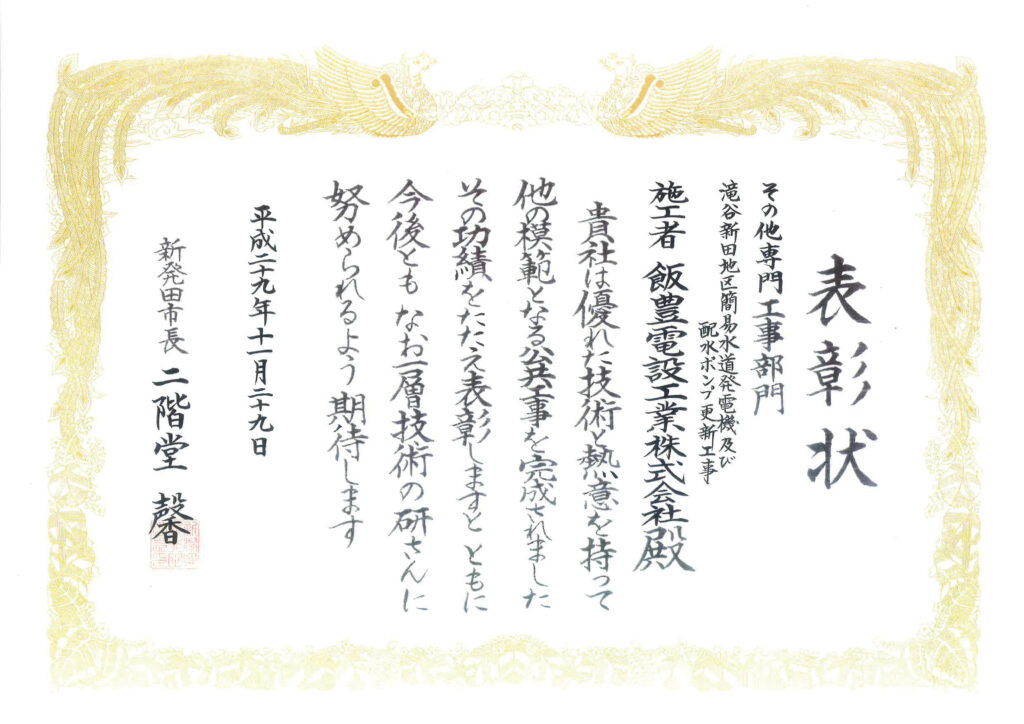 表彰状
その他専門工事部門
滝谷新田地区簡易水道発電機及び
配水ポンプ更新工事
施工者 飯豊電設工業株式会社殿
貴社は優れた技術と熱意を持って
他の模範となる公共工事を完成されました
その功績をたたえ表彰しますと ともに
今後とも なお一層技術の研さんに
努められるよう 期待します
平成二十九年十一月二十九日
新発田市長 二階堂 馨